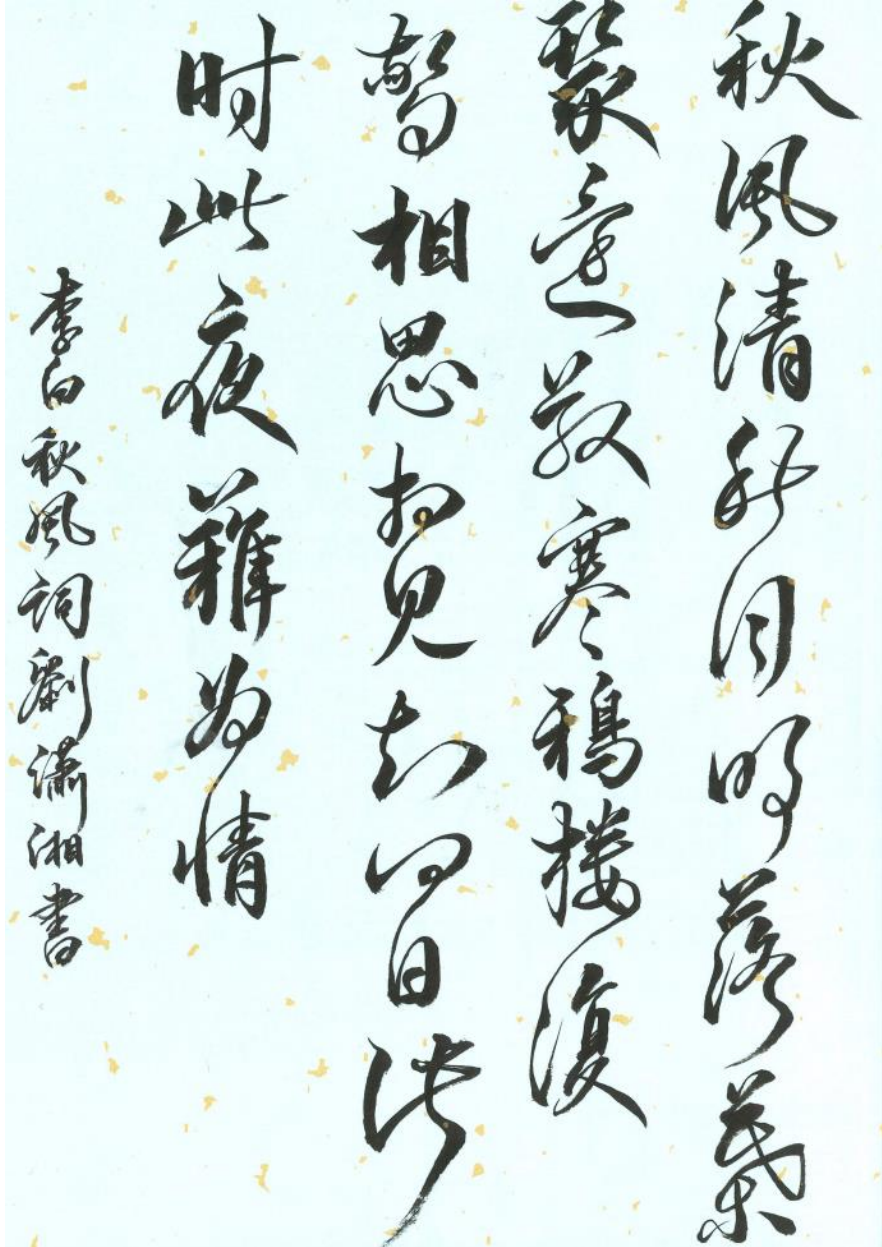 秋風清秋月明落葉
聚還散寒鴉棲復
驚相思相见知何日此
时此夜難为情
李白秋風词劉瀟湘書